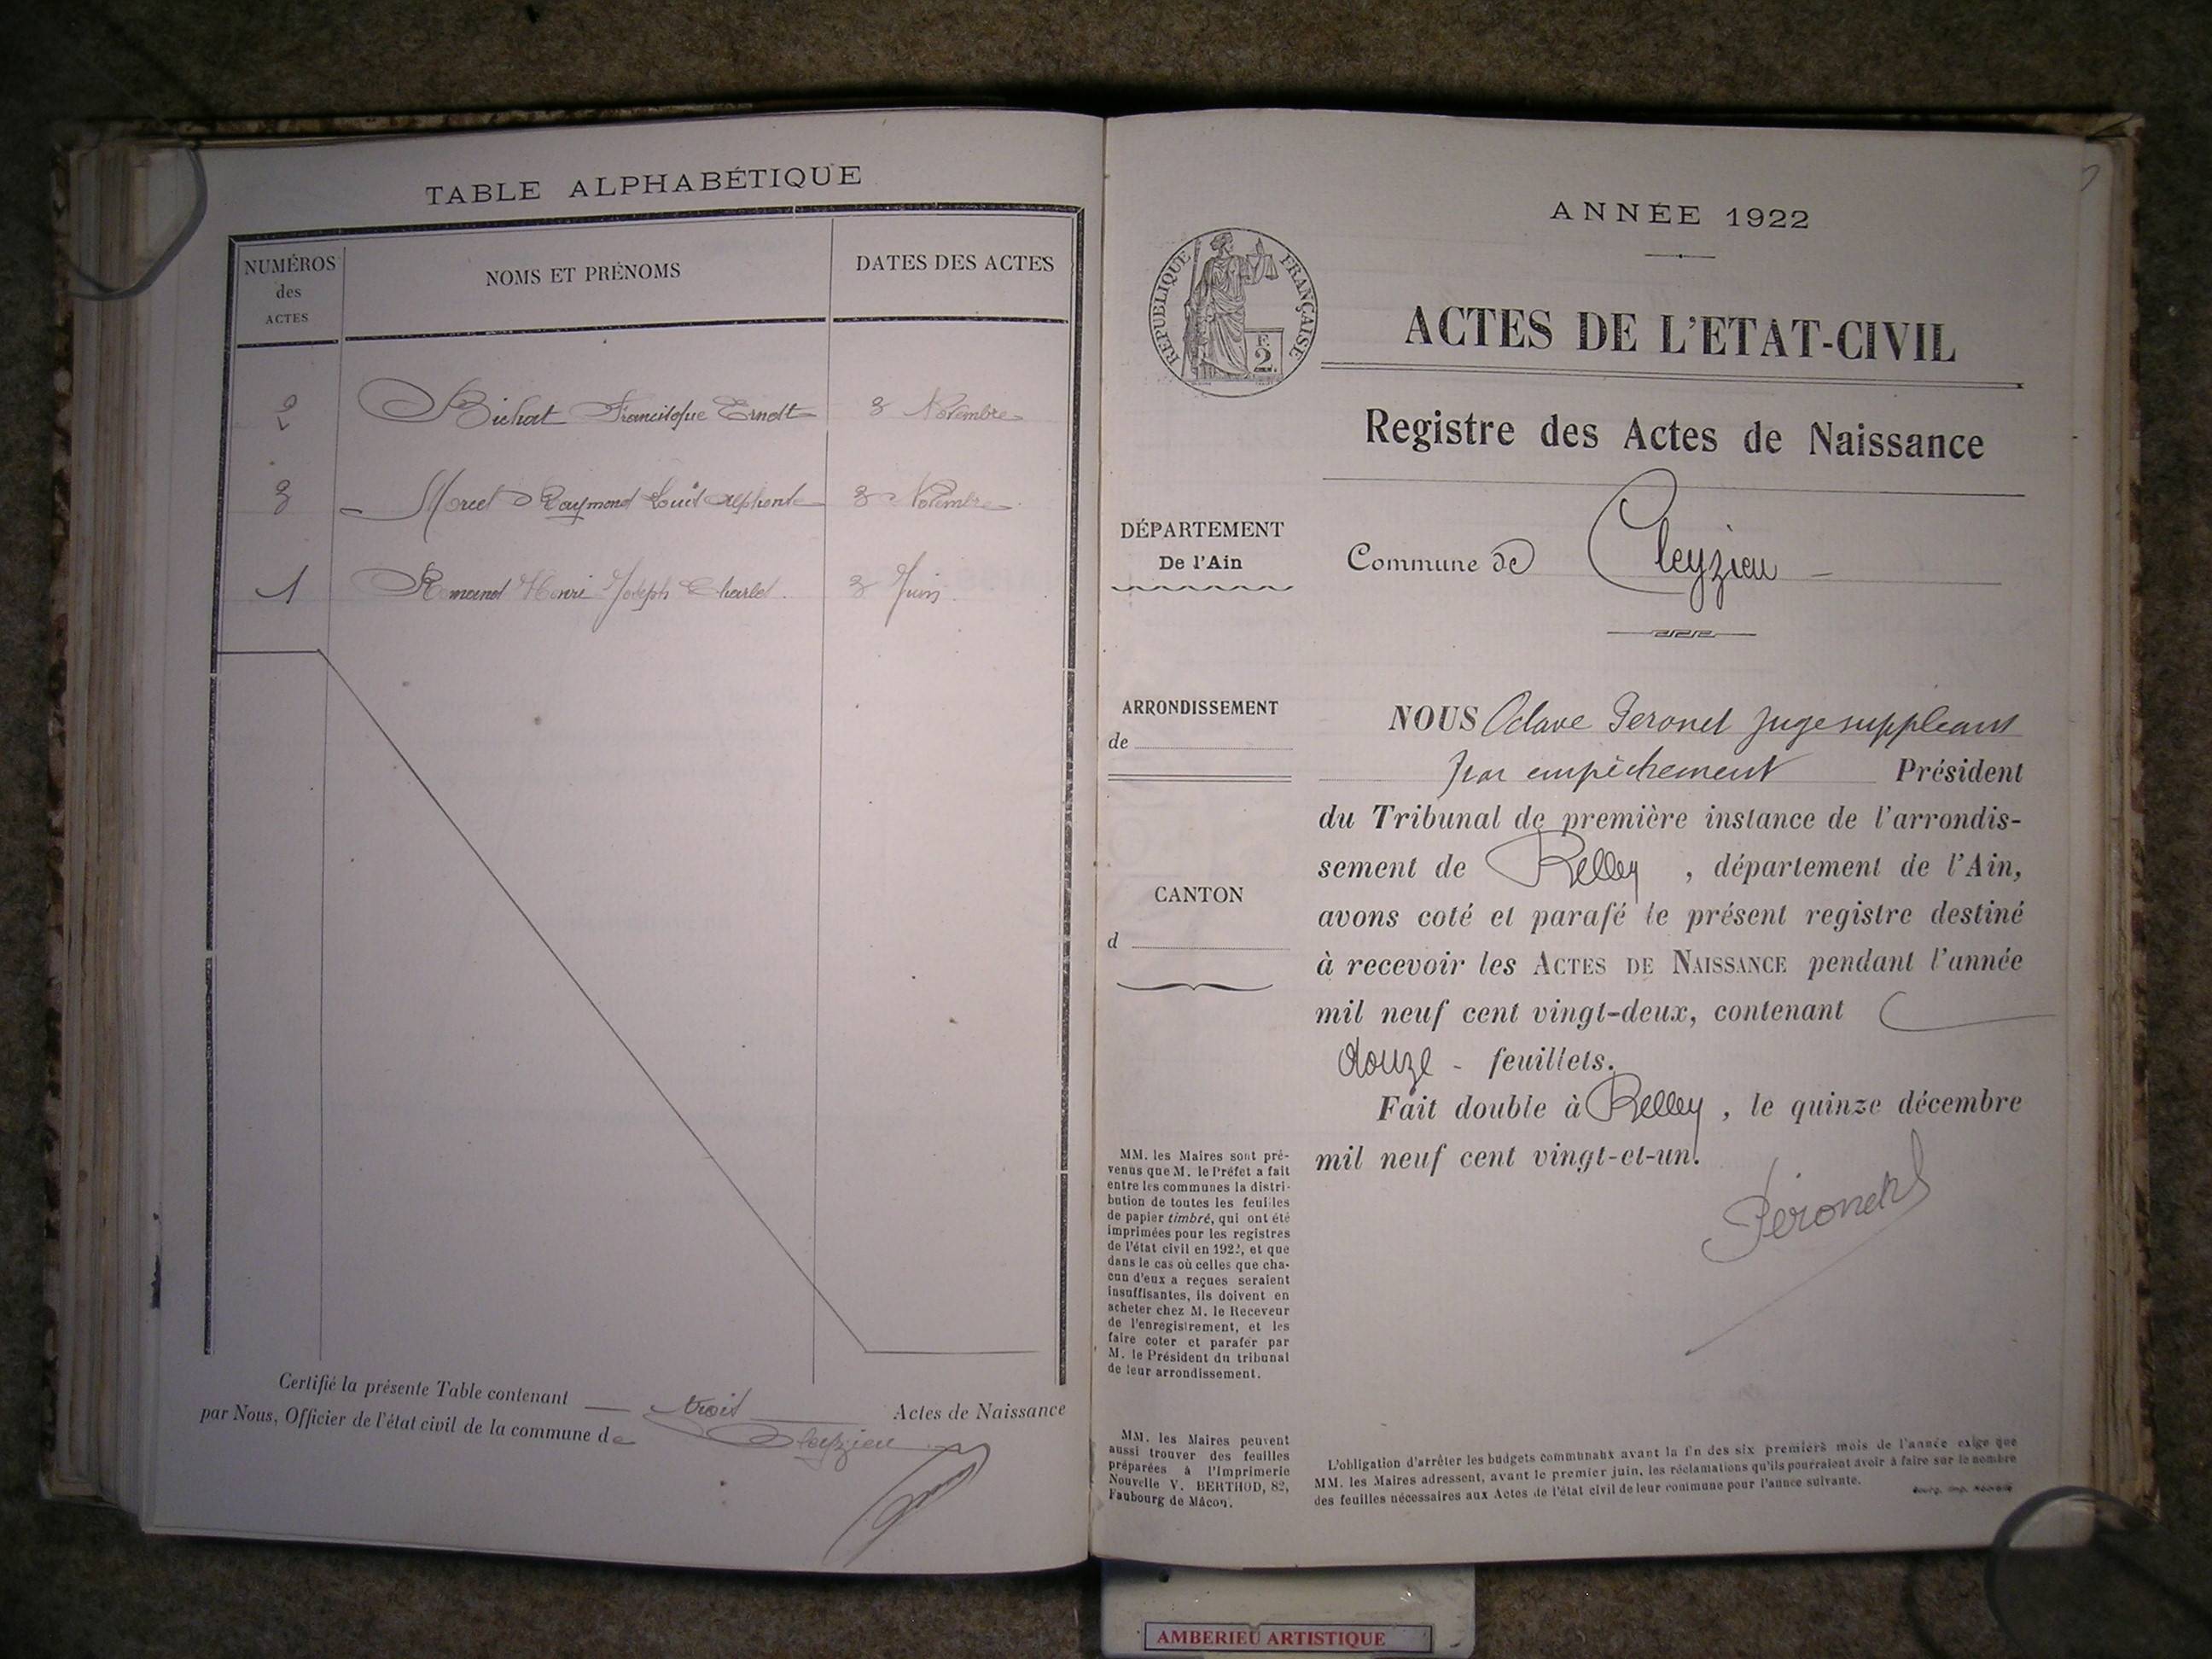 TABLE ALPHABÉTIQUE
NUMÉROS
des
ACTES
NOMS ET PRÉNOMS
DATES DES ACTES
2 Bichat Francisque Ernest 3 Novembre
3 Morel Raymond Louis Alphonse 3 Novembre
1 Romand Henri Joseph Charles. 3 Juin.
Certifié la présente Table contenant trois Actes de Naissance
par Nous, Officier de l'état civil de la commune de Cleyzieu
ANNÉE 1922
RÉPUBLIQUE FRANÇAISE
F.
2
ACTES DE L'ETAT-CIVIL
Registre des Actes de Naissance
DÉPARTEMENT
De l'Ain
Commune de Cleyzieu
ARRONDISSEMENT
de
CANTON
d
NOUS Octave Peronet juge suppléant
par empêchement Président
du Tribunal de première instance de l'arrondis-
sement de Belley, département de l'Ain,
avons coté et parafé le présent registre destiné
à recevoir les ACTES DE NAISSANCE pendant l'année
mil neuf cent vingt-deux, contenant
douze - feuillets.
Fait double à Belley, le quinze décembre
mil neuf cent vingt-et-un.
Péronet
MM. les Maires sont pré-
venus que M. le Préfet a fait
entre les communes la distri-
bution de toutes les feuilles
de papier timbré, qui ont été
imprimées pour les registres
de l'état civil en 1922, et que
dans le cas où celles que cha-
cun d'eux a reçues seraient
insuffisantes, ils doivent en
acheter chez M. le Receveur
de l'enregistrement, et les
faire coter et parafer par
M. le Président du tribunal
de leur arrondissement.
MM. les Maires peuvent
aussi trouver des feuilles
préparées à l'Imprimerie
Nouvelle V. BERTHOD, 82,
Faubourg de Mâcon.
L'obligation d'arrêter les budgets communaux avant la fin des six premiers mois de l'année exige que
MM. les Maires adressent, avant le premier juin, les réclamations qu'ils pourraient avoir à faire sur le nombre
des feuilles nécessaires aux Actes de l'état civil de leur commune pour l'année suivante.
Bourg, Imp. Nouvelle
AMBERIEU ARTISTIQUE